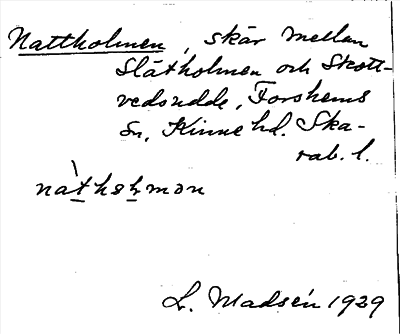 Nattholmen, skär mellan
Slätholmen och Skott-
vedsudde, Forshems
sn, Kinne hd. Ska-
rab. l.
nàthəlmən
L. Madsén 1929